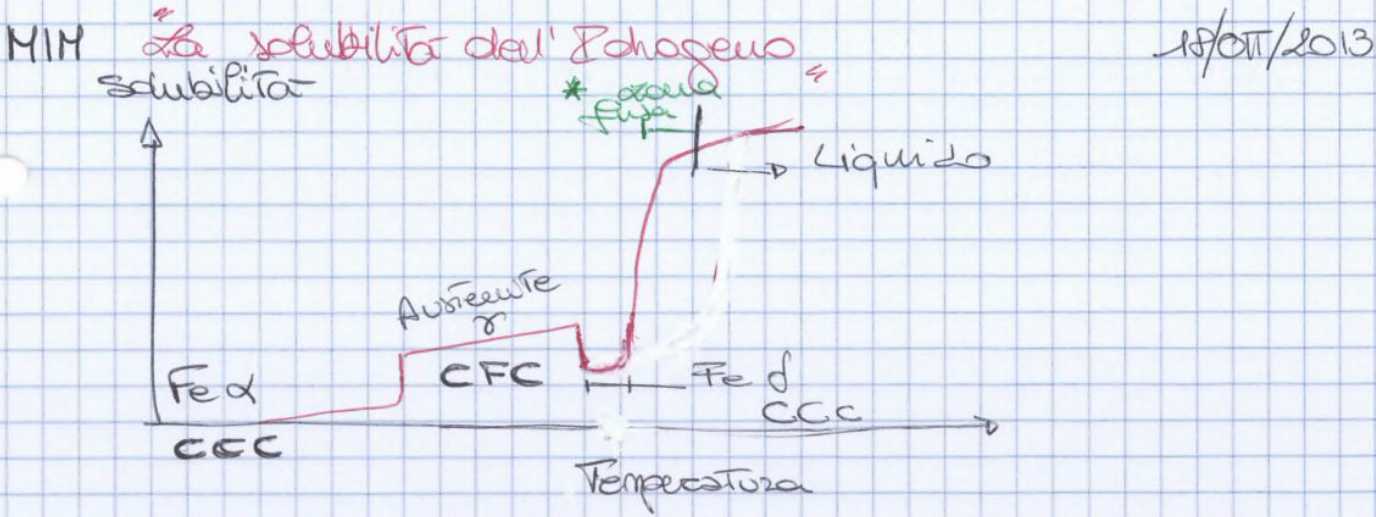 MIM "La solubilità dell'Idrogeno" 18/OTT/2013
solubilità
* zona
fusa
Liquido
Austenite
γ
Fe α
CFC
Fe δ
CCC
CCC
Temperatura